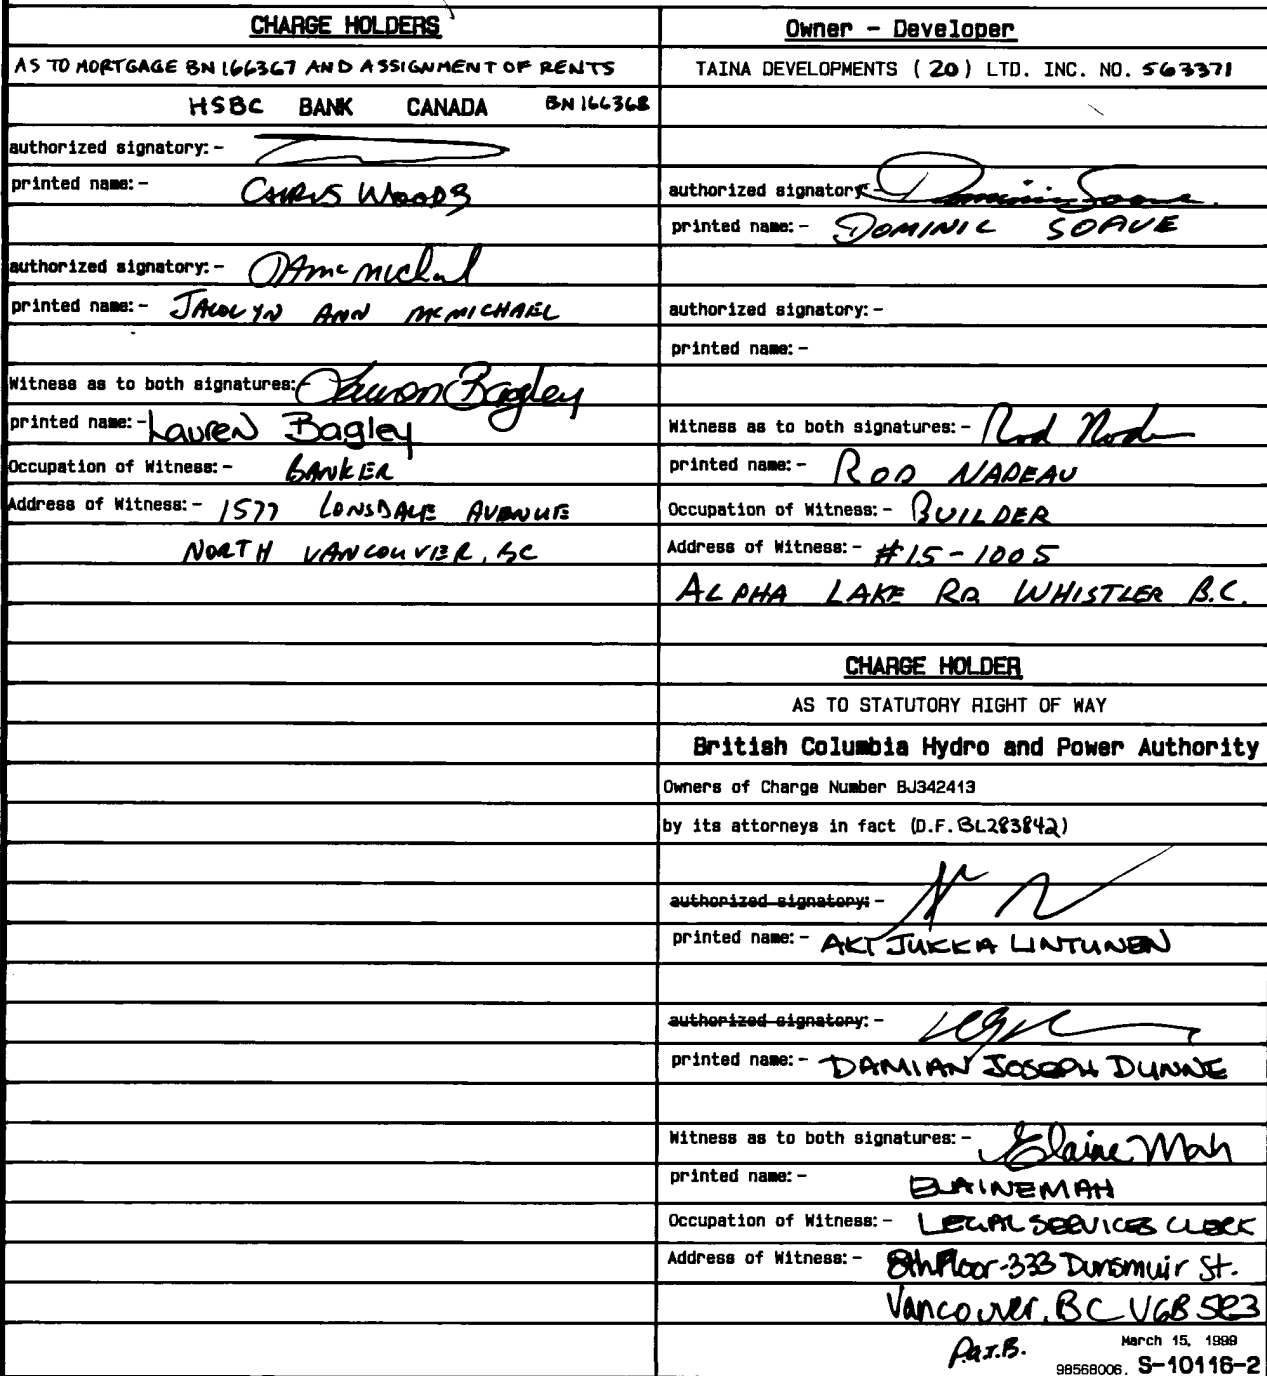 CHARGE HOLDERS
AS TO MORTGAGE BN166367 AND ASSIGNMENT OF RENTS
HSBC BANK CANADA BN166368
authorized signatory:-
printed name:- CHRIS WOODS
authorized signatory:- JAmcmichael
printed name:- JACOLYN ANN MCMICHAEL
Witness as to both signatures: Lauren Bagley
printed name:- Lauren Bagley
Occupation of Witness:- BANKER
Address of Witness:- 1577 LONSDALE AVENUE
NORTH VANCOUVER, BC
Owner - Developer
TAINA DEVELOPMENTS (20) LTD. INC. NO. 563371
authorized signatory:- Dominic Soave
printed name:- DOMINIC SOAVE
authorized signatory:-
printed name:-
Witness as to both signatures:- Rod Nadeau
printed name:- ROD NADEAU
Occupation of Witness:- BUILDER
Address of Witness:- #15-1005
ALPHA LAKE RD WHISTLER B.C.
CHARGE HOLDER
AS TO STATUTORY RIGHT OF WAY
British Columbia Hydro and Power Authority
Owners of Charge Number BJ342413
by its attorneys in fact (D.F. BL283842)
authorized signatory:-
printed name:- AKI JUKKA LINTUNEN
authorized signatory:-
printed name:- DAMIAN JOSEPH DUNNE
Witness as to both signatures:- Elaine Mah
printed name:- ELAINE MAH
Occupation of Witness:- LEGAL SERVICES CLERK
Address of Witness:- 8th Floor-333 Dunsmuir St.
Vancouver, BC V6B 5R3
March 15, 1999
98568006. S-10116-2